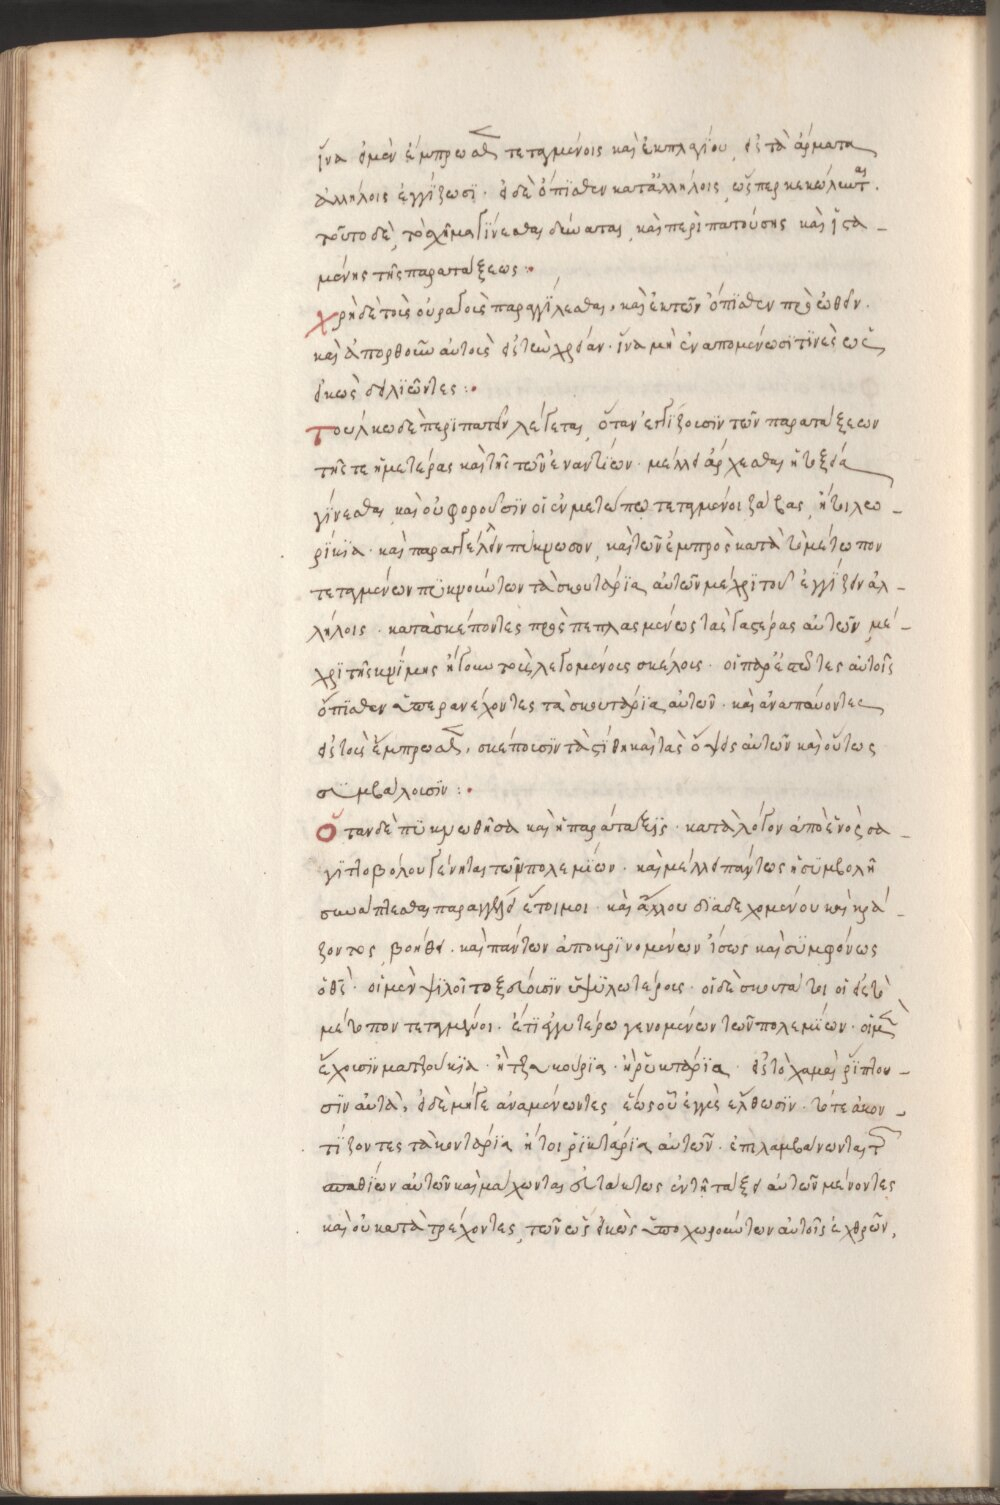 ἵνα οἱ μὲν ἔμπροσθεν τεταγμένοις καὶ ἐκ πλαγίου, εἰς τὰ ἄρματα
ἀλλήλοις ἐγγίζωσϊ · οἱ δὲ ὄπϊσθεν κατ' ἀλλήλοις, ὥσπερ κεκώλωνται .
τοῦτο δὲ, τὸ σχῆμα γίνεσθαι δύναται, καὶ περϊπατούσης καὶ ἱστα –
μένης τῆς παρατάξεως :·
χρὴ δὲ τοῖς οὐραγοῖς παραγγϊλεσθαι, καὶ ἐκ τῶν ὄπϊσθεν προσωθεῖν .
καὶ ἀπορθοῦν αὐτοὺς εἰς τὴν χρείαν · ἵνα μὴ ἐναπομένωσϊ τϊνὲς ὡς
εἰκὼς δειλϊῶντες :·
Τουλκω δὲ περϊπατεῖν λέγεται, ὅταν ἐγγϊζουσϊν τῶν παρατάξεων
τῆς τε ἡμετέρας καὶ τῆς τῶν ἐναντίων · μέλλει ἄρχεσθαι ἡ τοξεία
γίνεσθαι, καὶ οὐ φοροῦσϊν οἱ ἐν μετώπω τεταγμένοι ζάβας, ἤτοι λω –
ρίκϊα · καὶ παραγγέλλειν πύκνωσον, καὶ τῶν ἐμπρὸς κατὰ τὸ μέτωπον
τεταγμένων πϋκνούντων τὰ σκουτάρϊα αὐτῶν μέχρϊ τοῦ ἐγγίζειν ἀλ –
λήλοις · κατασκέποντες προσπεπλασμένως τὰς γαστέρας αὐτῶν, μέ –
χρϊ τῆς κνίμης ἤγουν τοῖς λεγομένοις σκέλοις · οἱ παρεστῶτες αὐτοῖς
ὄπϊσθεν ὑπερανέχοντες τὰ σκουτάρϊα αὐτῶν · καὶ ἀναπαύοντες
εἰς τοὺς ἔμπροσθεν, σκέπουσϊν τὰ στήθη καὶ τὰς ὄψεις αὐτῶν καὶ οὕτως
συμβάλουσϊν :·
Ὅταν δὲ πϋκνωθῆσα καὶ ἡ παράταξϊς · κατὰ λόγον ἀπὸ ἑνὸς σα –
γϊττοβόλου γένηται τῶν πολεμίων · καὶ μέλλει πάντως ἡ συμβολὴ
συνάπτεσθαι παραγγέλλει ἕτοιμοι · καὶ ἄλλου δϊαδεχομένου καὶ κρά –
ζοντος, βοήθει · καὶ πάντων ἀποκρϊνομένων ἴσως καὶ συμφόνως
ὁ θεὸς · οἱ μὲν ψϊλοὶ τοξεύουσϊν ὑψϋλωτέροις · οἱ δὲ σκουτάτοι οἱ εἰς τὸ
μέτωπον τεταγμένοι · ἔτϊ ἐγγυτέρω γενομένων τῶν πολεμίων · οἱ μὲν
ἔχουσϊν ματζούκϊα · ἢ τζακούρϊα · ἢ ρϊκτάρϊα · εἰς τὸ χαμαὶ ῥίπτου –
σϊν αὐτὰ, εἰ δὲ μήγε ἀναμένωντες ἕως οὗ ἐγγὺς ἔλθωσϊν · τότε ἀκον –
τίζοντες τὰ κοντάρϊα ἤτοι ῥϊκτάρϊα αὐτῶν · ἐπϊλαμβάνωνται τῶν
σπαθίων αὐτῶν καὶ μάχωνται εὐτάκτως ἐν τῇ τάξει αὐτῶν μένοντες
καὶ οὐ κατατρέχοντες, τῶν ὡς εἰκὼς ὑποχωρούντων αὐτοῖς ἐχθρῶν,